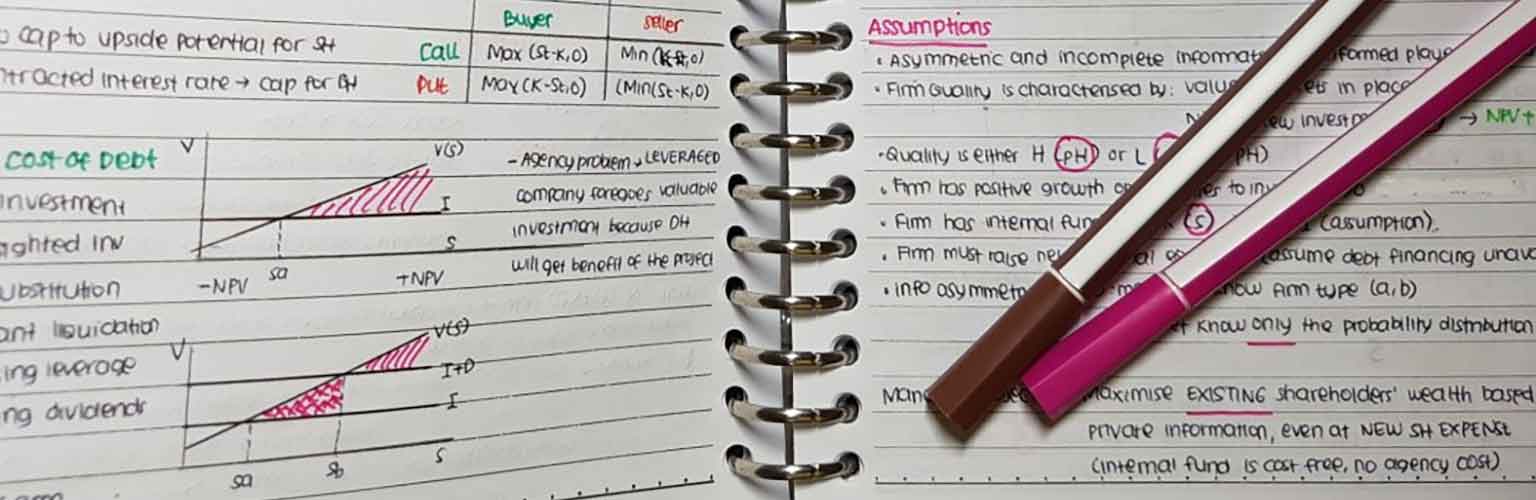 Buyer seller
cap to upside potential for SH Call Max (St-K,0) Min (K-St,0)
ntracted interest rate → cap for DH Put Max (K-St,0) (Min(St-K,0)
cost of Debt
investment
ighted Inv
ubstitution
ant liquidation
ing leverage
ng dividends
V
V(s)
I
s
sa
-NPV +NPV
- Agency problem → LEVERAGED
company foregoes valuable
investment because DH
will get benefit of the project
V
V(s)
I+D
I
s
sa sb
Assumptions
• Asymmetric and incomplete informat formed playe
• Firm Quality is characterised by: value ets in place
ew invest → NPV+
• Quality is either H (pH) or L pH)
• Firm has positive growth op es to inv
• Firm has internal fun (s) (assumption).
• Firm must raise ne assume debt financing unava
• Info asymmet now firm type (a,b)
know only the probability distribution
Mana maximise EXISTING shareholders' wealth based
private information, even at NEW SH EXPENSE
(internal fund is cost free, no agency cost)